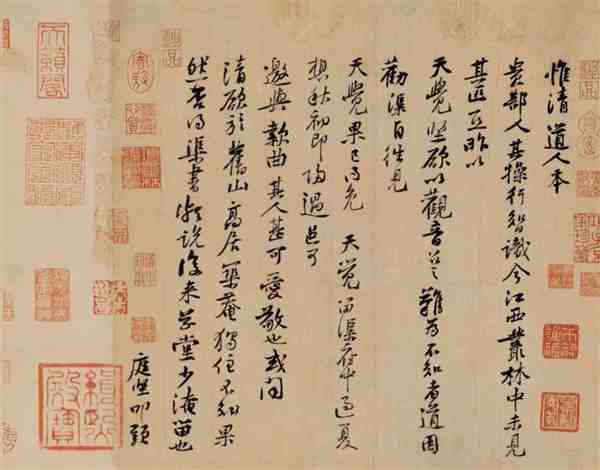 惟清道人本
貴部人其操行智識今江西叢林中未見
其匹亞昨以
天覺堅欲以觀音召之難為不知者道因
勸渠自往見
天覺果已得免 天覺留渠府中過夏
想秋初即歸過邑可
邀與款曲其人甚可愛敬也或問
清欲於舊山高居築庵獨住不知果
然否得渠書頗說後來草堂少淹留也
庭堅叩頭
天籟閣
緝熙殿寶